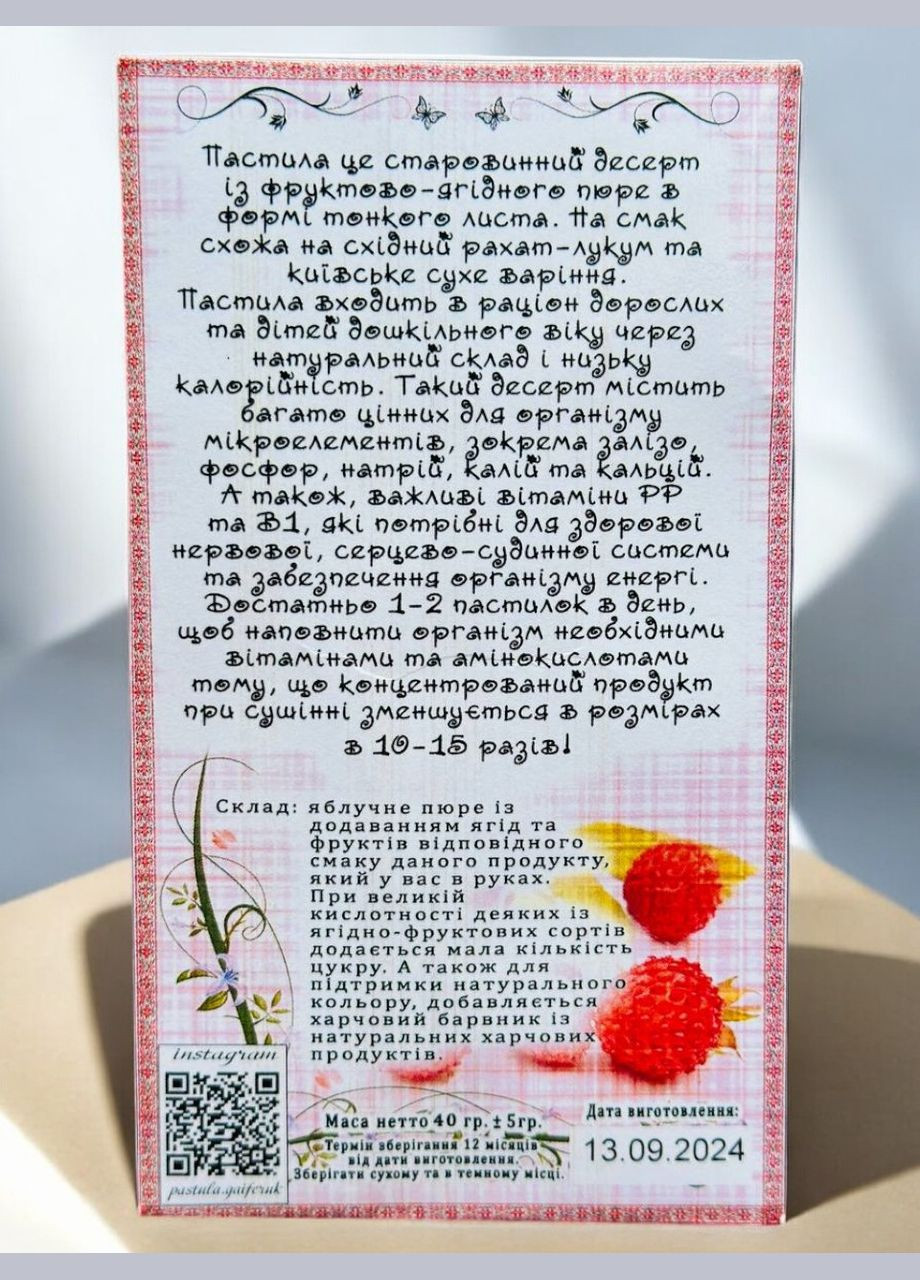 Пастила це старовинний десерт
із фруктово-ягідного пюре в
формі тонкого листа. На смак
схожа на східний рахат-лукум та
київське сухе варіння.
Пастила входить в раціон дорослих
та дітей дошкільного віку через
натуральний склад і низьку
калорійність. Такий десерт містить
багато цінних для організму
мікроелементів, зокрема залізо,
фосфор, натрій, калій та кальцій.
А також, важливі вітаміни РР
та В1, які потрібні для здорової
нервової, серцево-судинної системи
та забезпечення організму енергі.
Достатньо 1-2 пастилок в день,
щоб наповнити організм необхідними
вітамінами та амінокислотами
тому, що концентрований продукт
при сушінні зменшується в розмірах
в 10-15 разів!
Склад: яблучне пюре із
додаванням ягід та
фруктів відповідного
смаку даного продукту,
який у вас в руках.
При великій
кислотності деяких із
ягідно-фруктових сортів
додається мала кількість
цукру. А також для
підтримки натурального
кольору, добавляється
харчовий барвник із
натуральних харчових
продуктів.
instagram
pastula.gaifornk
Маса нетто 40 гр. ± 5гр.
Термін зберігання 12 місяців
від дати виготовлення.
Зберігати сухому та в темному місці.
Дата виготовлення:
13.09.2024